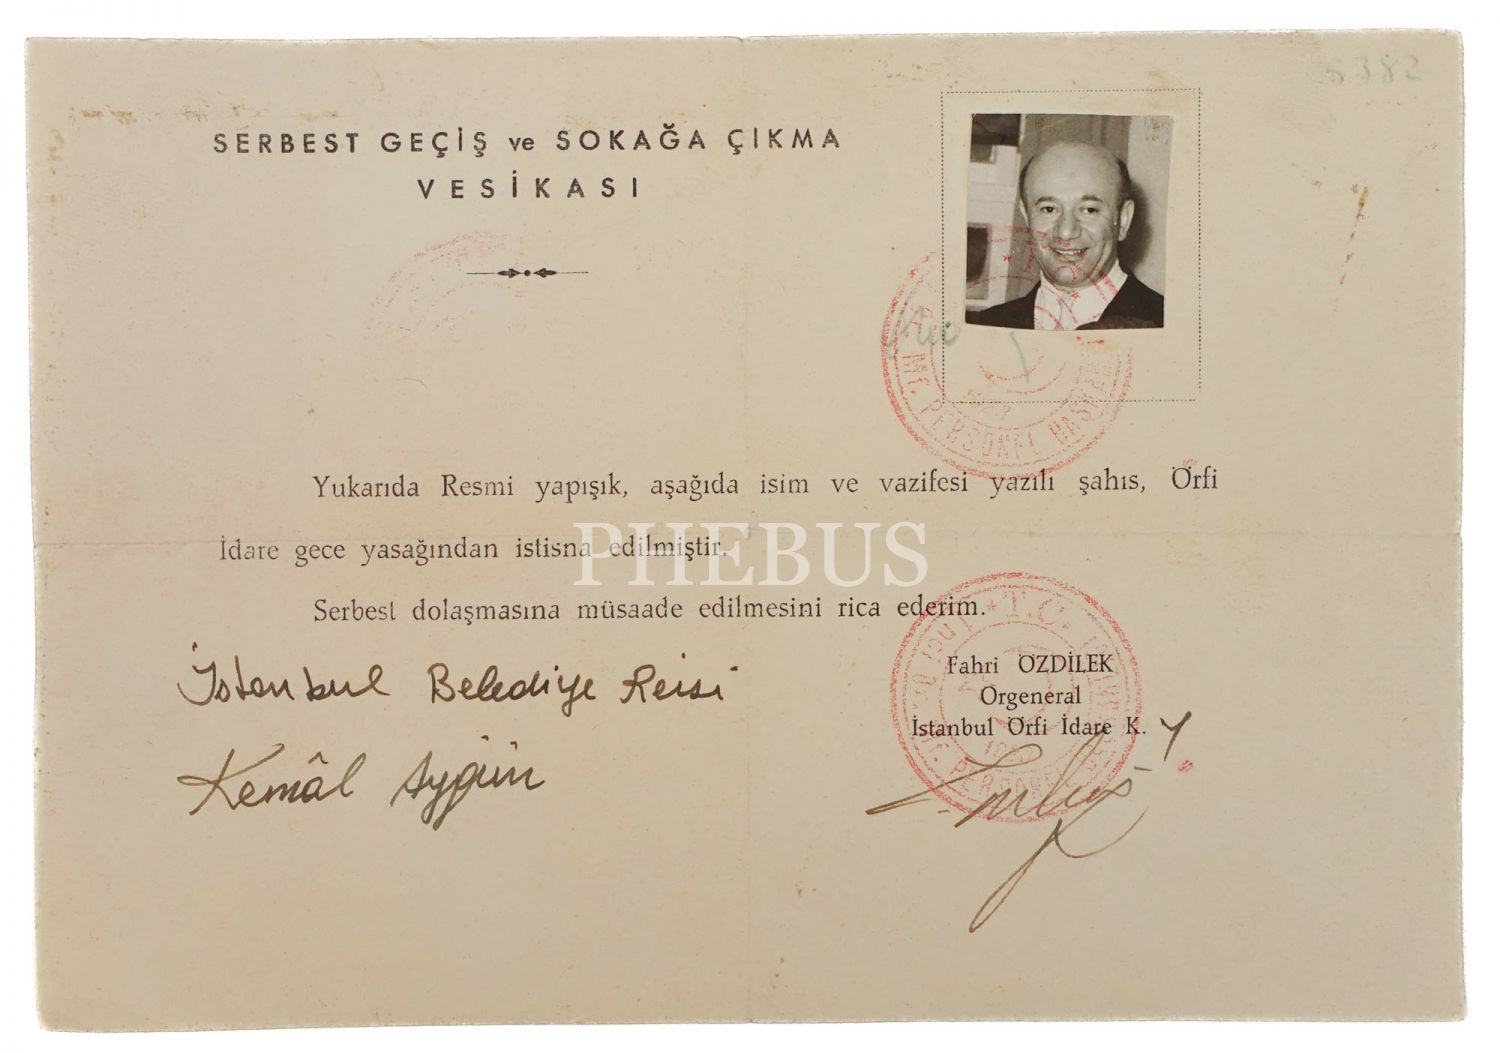 5382
SERBEST GEÇİŞ ve SOKAĞA ÇIKMA
VESİKASI
T.C.
Mf. PERSONEL BAŞKAN
Yukarıda Resmi yapışık, aşağıda isim ve vazifesi yazılı şahıs, Örfi
İdare gece yasağından istisna edilmiştir.
PHEBUS
Serbest dolaşmasına müsaade edilmesini rica ederim.
T.C.
İstanbul Belediye Reisi
Kemâl Aygün
Fahri ÖZDİLEK
Orgeneral
İstanbul Örfi İdare K.
PERSONEL